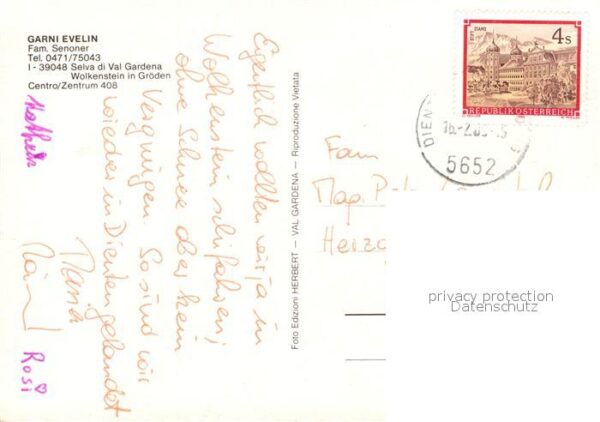 GARNI EVELIN
Fam. Senoner
Tel. 0471/75043
I - 39048 Selva di Val Gardena
Wolkenstein in Gröden
Centro/Zentrum 408
Eigentlich wollten wir ja in
Wolkenstein schifahren,
ohne Schnee aber kein
Vergnügen. So sind wir
wieder in Dienten gelandet
Maria
Rosi
Foto Edizioni HERBERT — VAL GARDENA — Riproduzione Vietata
STIFT STAMS
4 S
REPUBLIK ÖSTERREICH
DIEN
5652
Fam
Mag.
privacy protection
Datenschutz